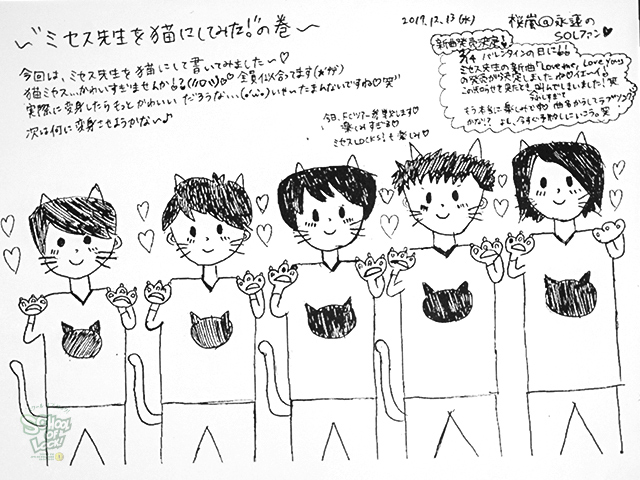 ～"ミセス先生を猫にしてみた!"の巻～
2017.12.13(水)
桜嵐@永遠の
SOLファン♡
今回は、ミセス先生を猫にして書いてみました～♡
猫ミセス…かわいすぎませんか
全員似合ってます
実際に変身したらもっとかわいい だろうな…(´･ω･`)いやいたまんないですね♡笑"
次は何に変身させようかな～♪
今日、FCツアー参戦します
楽しみすぎる♡
ミセスLOCKS!も楽しみ♡
新曲発売決定!
2/14 バレンタインの日に
ミセス先生の新曲「Love me, Love You」
の発売が決定しました
この送らせを見たとき、叫んでしまいました!
それしすぎて
もう本当に楽しみです♡ 曲名からしてラブソング
かな!? よし、今すぐ予約しにいこう。笑
SCHOOL OF LOCK!